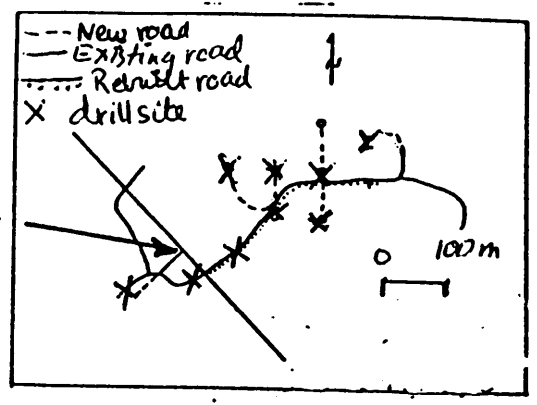 New road
Existing road
Rebuilt road
X drill site
0 100 m